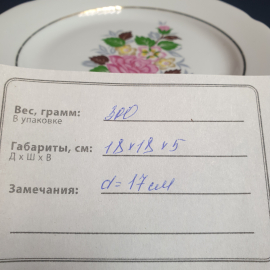 Вес, грамм: 300
В упаковке
Габариты, см: 18 x 18 x 5
Д x Ш x В
Замечания: d = 17 см